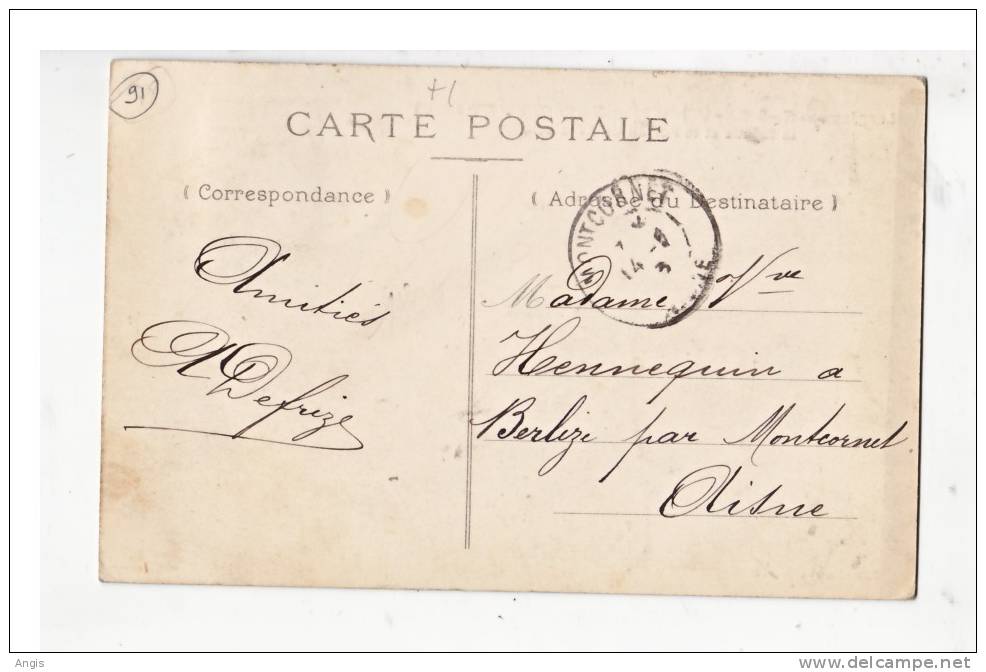 91
CARTE POSTALE
( Correspondance )
( Adresse du Destinataire )
MONTCORNET
Amitiés
A Defrize
Madame Vve
Hennequin a
Berlize par Montcornet
Aisne
Angis
www.delcampe.net